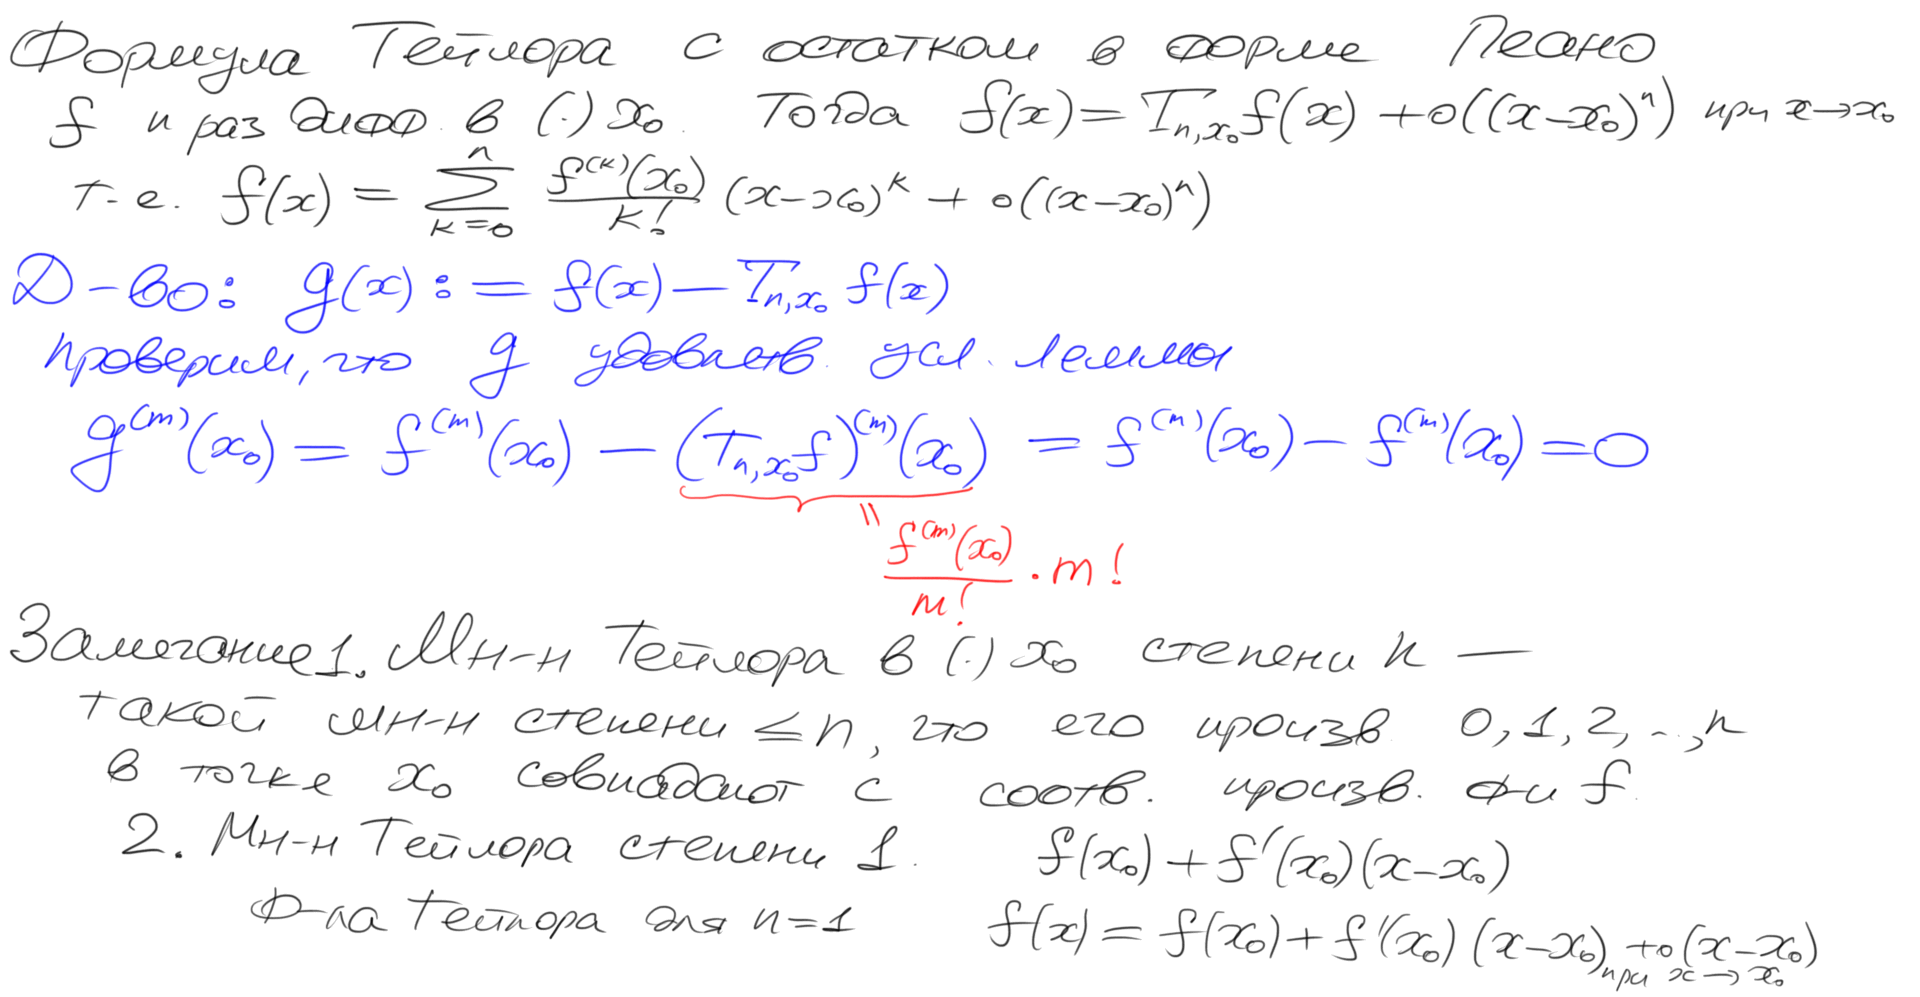 Формула Тейлора с остатком в форме Пеано
f n раз дифф. в (·) x₀. Тогда f(x) = T_{n,x₀}f(x) + o((x-x₀)ⁿ) при x→x₀
т.е. f(x) = \sum_{k=0}^{n} \frac{f^{(k)}(x₀)}{k!} (x-x₀)^k + o((x-x₀)ⁿ)
Д-во: g(x) := f(x) - T_{n,x₀} f(x)
проверим, что g удовлетв. усл. леммы
g^{(m)}(x₀) = f^{(m)}(x₀) - (T_{n,x₀}f)^{(m)}(x₀) = f^{(m)}(x₀) - f^{(m)}(x₀) = 0
\frac{f^{(m)}(x₀)}{m!} · m!
Замечание 1. Мн-н Тейлора в (·) x₀ степени n —
такой мн-н степени ≤ n, что его произв. 0, 1, 2, ..., n
в точке x₀ совпадают с соотв. произв. ф-и f.
2. Мн-н Тейлора степени 1. f(x₀) + f'(x₀)(x-x₀)
Ф-ла Тейлора для n=1 f(x) = f(x₀) + f'(x₀)(x-x₀) + o(x-x₀)
при x→x₀